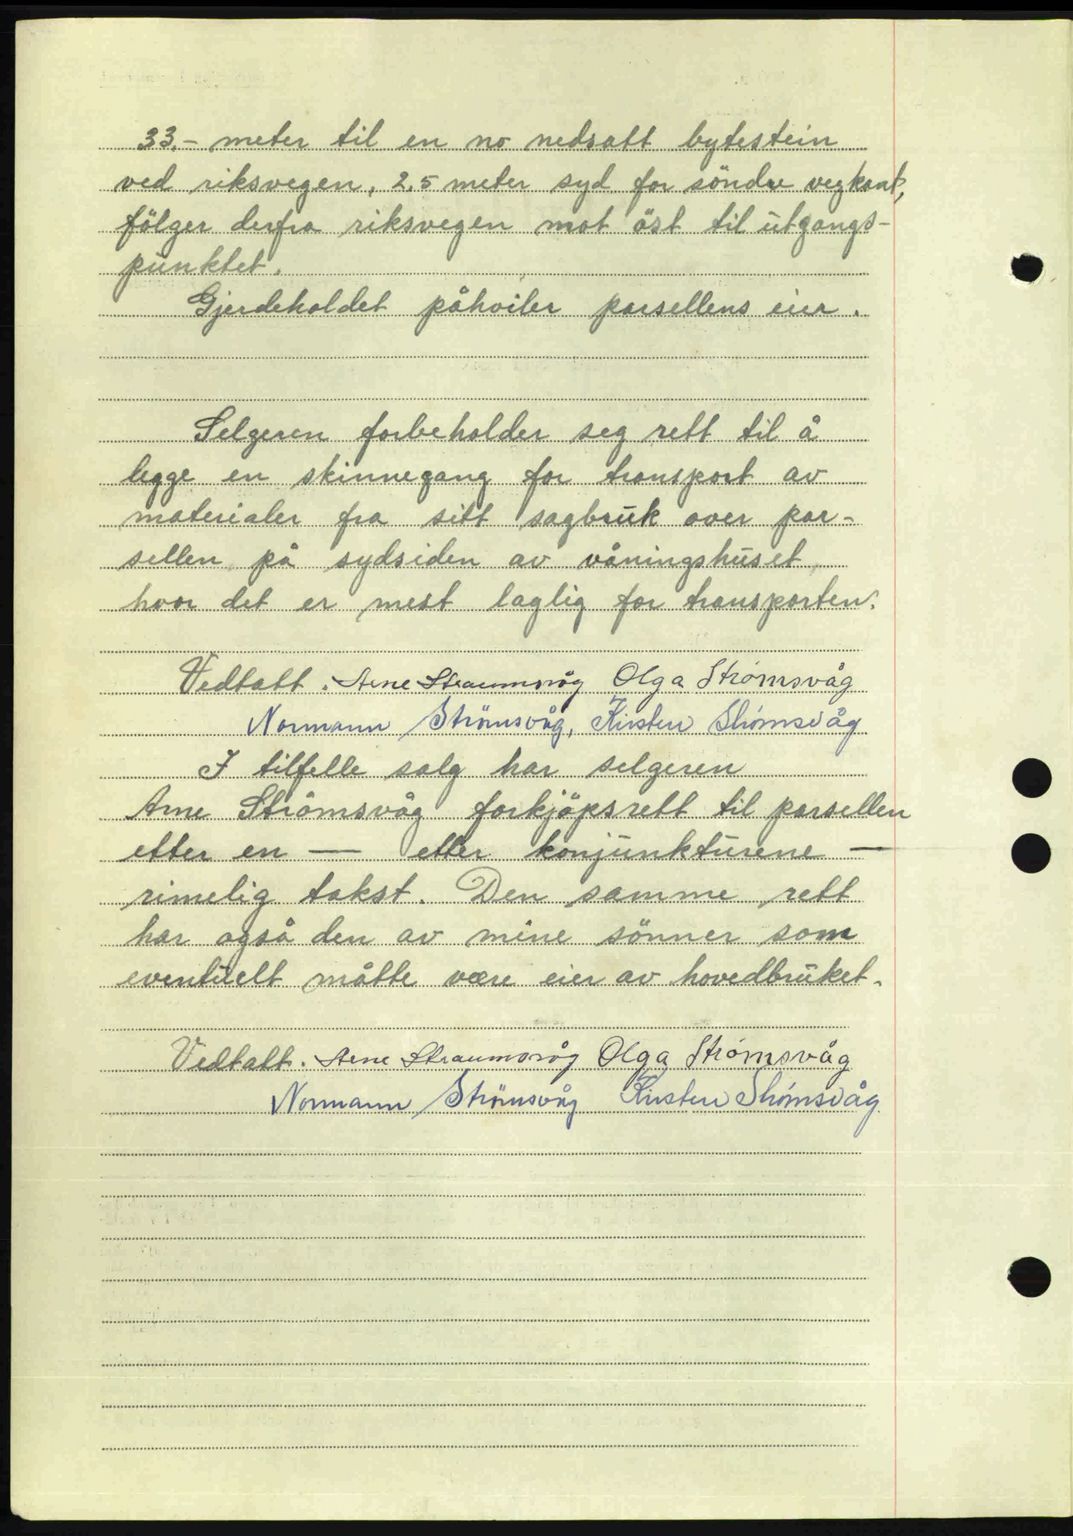 33.- meter til en no nedsatt bytestein
ved riksvegen, 2.5 meter syd for söndre vegkant,
fölger derfra riksvegen mot öst til utgangs-
punktet.
Gjerdeholdet påhviler parsellens eier.
Selgeren forbeholder seg rett til å
legge en skinnegang for transport av
materialer fra sitt sagbruk over par-
sellen på sydsiden av våningshuset,
hvor det er mest laglig for transporten.
Vedtatt. Arne Straumsvåg Olga Strømsvåg
Normann Strömsvåg, Kirsten Strømsvåg
I tilfelle salg har selgeren
Arne Strömsvåg forkjöpsrett til parsellen
etter en — etter konjunkturene —
rimelig takst. Den samme rett
har også den av mine sönner som
eventuelt måtte være eier av hovedbruket.
Vedtatt. Arne Straumsvåg Olga Strømsvåg
Normann Strömsvåg Kirsten Strømsvåg